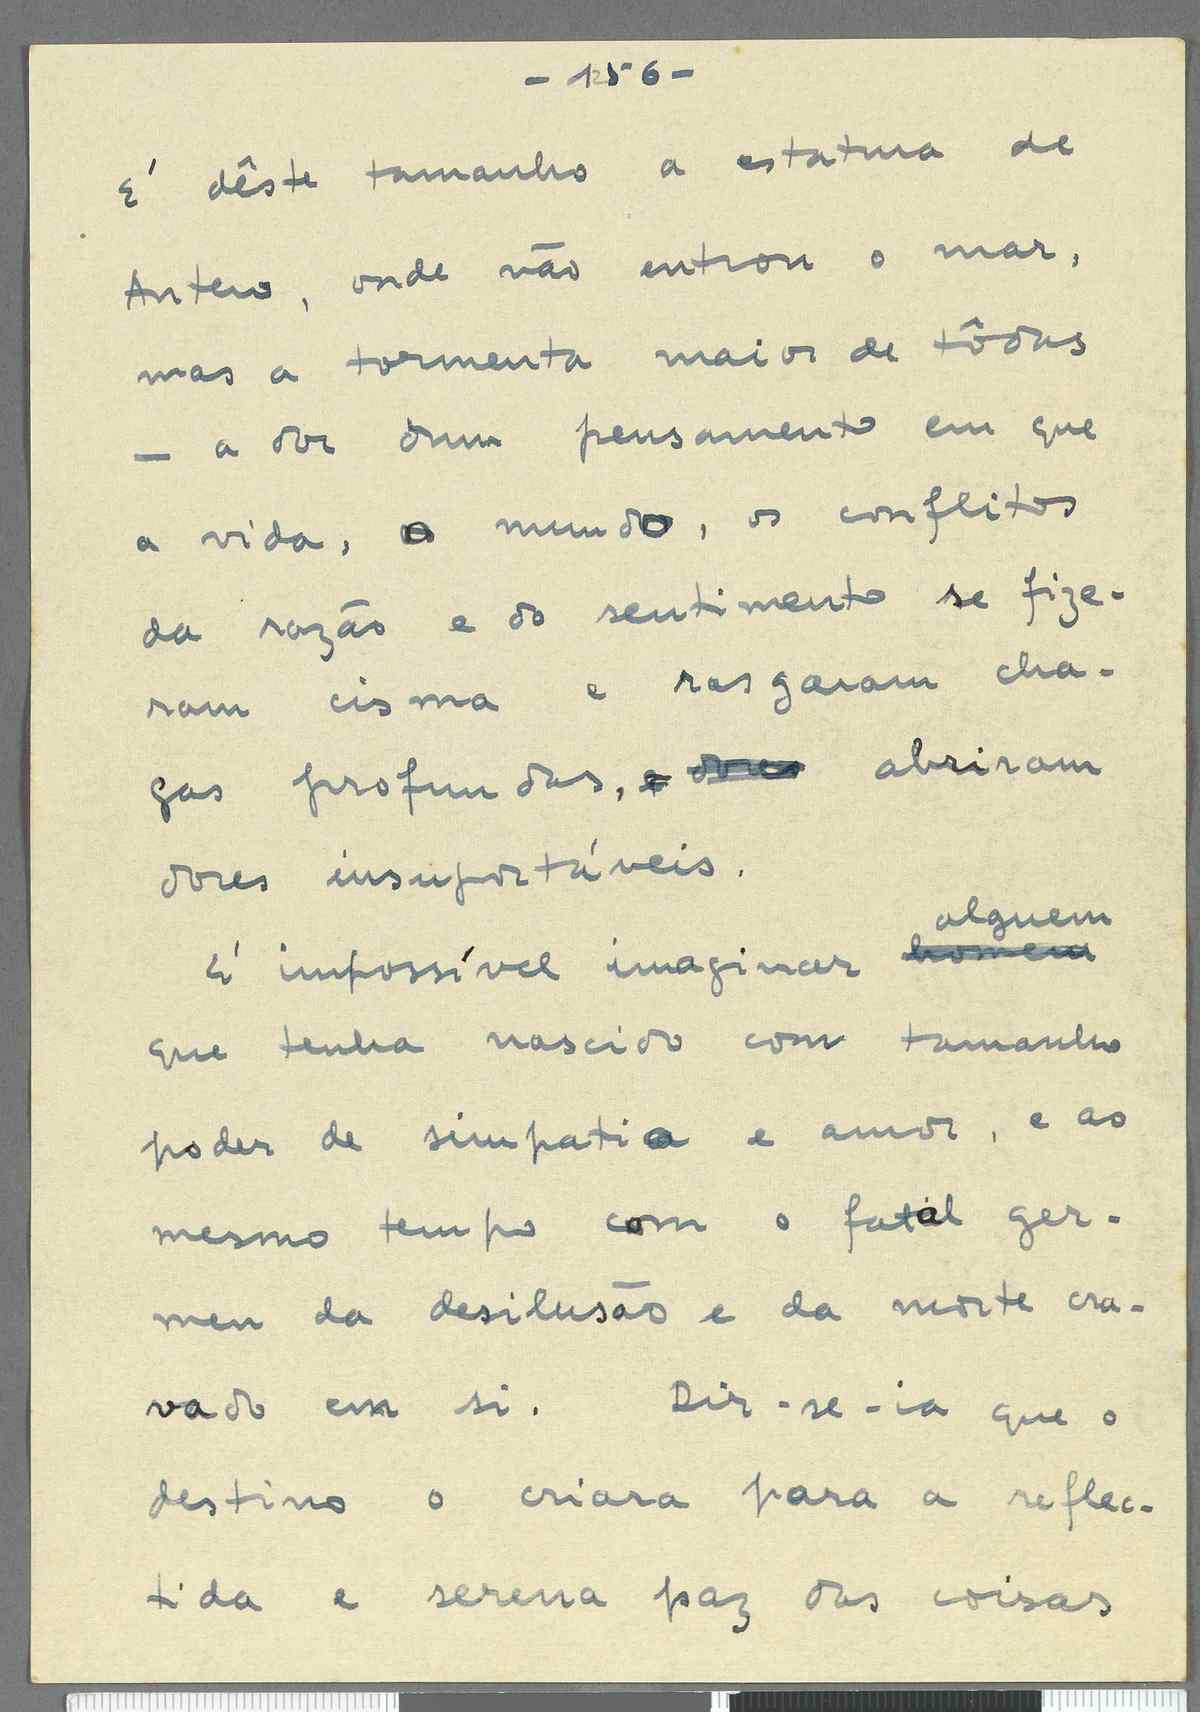 - 156 -
É dêste tamanho a estatura de
Antero, onde não entrou o mar,
mas a tormenta maior de tôdas
— a dor dum pensamento em que
a vida, o mundo, os conflitos
da razão e do sentimento se fize-
ram cisma e rasgaram cha-
gas profundas, e dores abriram
dores insuportáveis.
alguem
É impossível imaginar homem
que tenha nascido com tamanho
poder de simpatia e amor, e ao
mesmo tempo com o fatal ger-
men da desilusão e da morte cra-
vado em si. Dir-se-ia que o
destino o criara para a reflec-
tida e serena paz das coisas